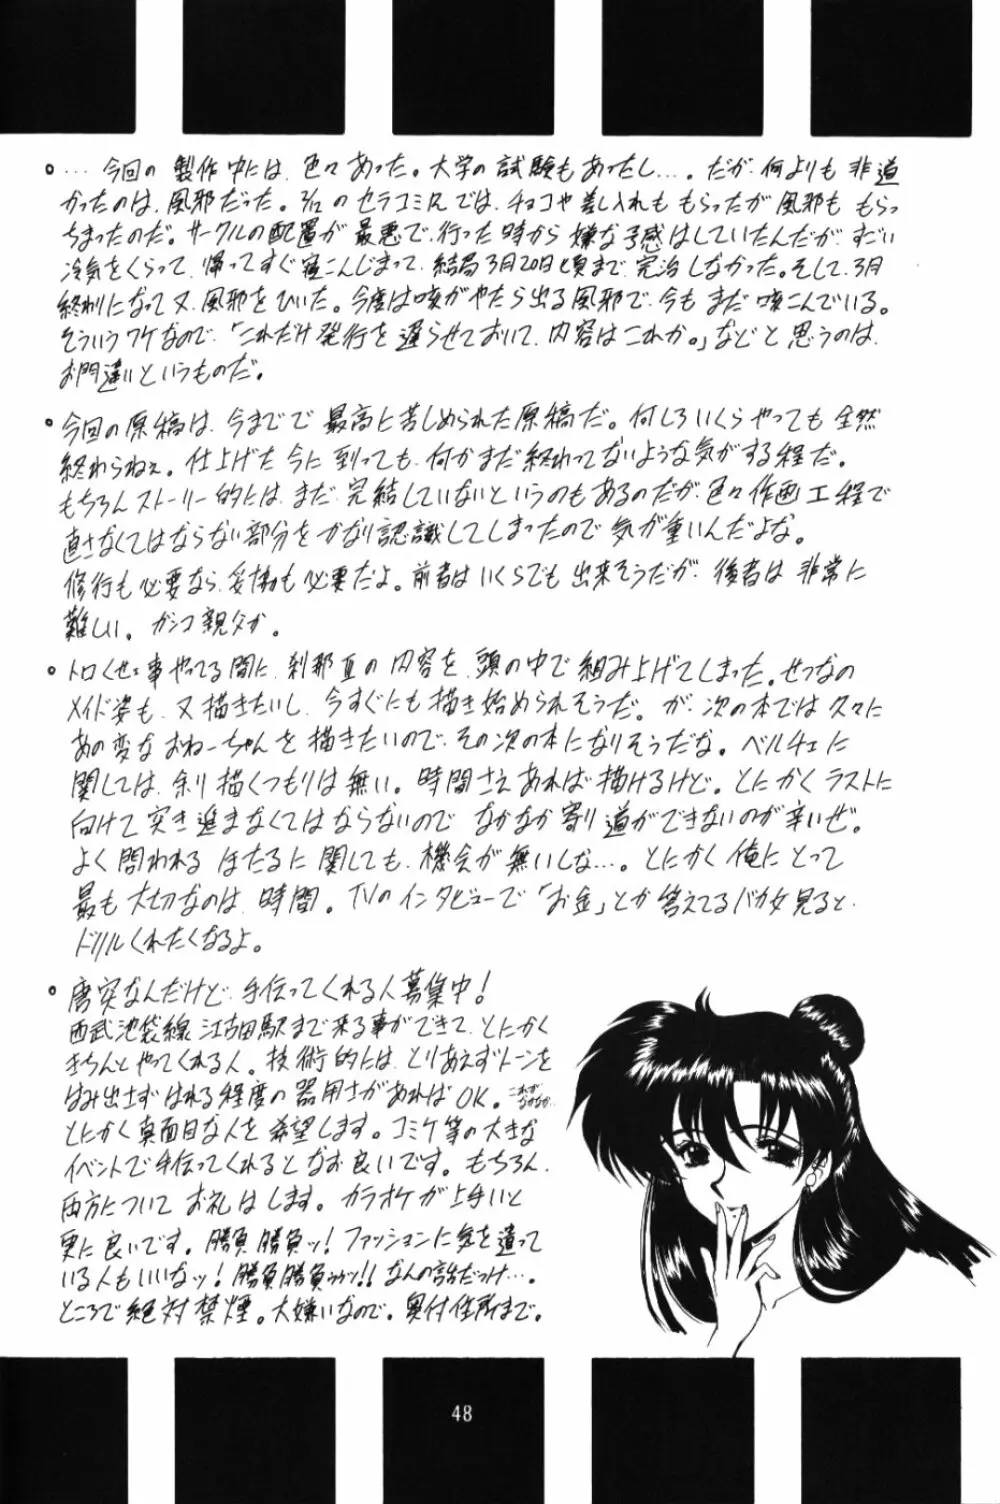 ・…今回の製作中には、色々あった。大学の試験もあったし…。だが、何よりも非道
かったのは、風邪だった。3/12のセラコミRでは、チョコや差し入れももらったが風邪ももらっ
ちまったのだ。サークルの配置が最悪で、行った時から嫌な予感はしていたんだが、すごい
冷気をくらって、帰ってすぐ寝こんじまって、結局3月20日頃まで、完治しなかった。そして、3月
終わりになって又、風邪をひいた。今度は咳がやたら出る風邪で、今もまだ咳こんでいる。
そういうワケなので、「これだけ発行を遅らせておいて、内容はこれか。」などと思うのは、
お門違いというものだ。
・今回の原稿は、今までで最高に苦しめられた原稿だ。何しろいくらやっても全然
終わらねぇ。仕上げた今に到っても、何かまだ終わってないような気がする程だ。
もちろんストーリー的には、まだ完結していないというのもあるのだが、色々作画工程で
直さなくてはならない部分をかなり認識してしまったので気が重いんだよな。
修行も必要なら、妥協も必要だよ。前者はいくらでも出来そうだが、後者は非常に
難しい。ガンコ親父か。
・トロくせェ事やってる間に、刹那Ⅱの内容を、頭の中で組み上げてしまった。せつなの
メイド姿も、又描きたいし、今すぐにも描き始められそうだ。が、次の本では久々に
あの変なおねーちゃんを描きたいので、その次の本になりそうだな。ベルチェに
関しては、余り描くつもりは無い。時間さえあれば描けるけど。とにかくラストに
向けて突き進まなくてはならないので、なかなか寄り道ができないのが辛いぜ。
よく問われるほたるに関しても、機会が無いしな…。とにかく俺にとって
最も大切なのは、時間。TVのインタビューで「お金」とか答えてるバカ女見ると、
ドリルくれたくなるよ。
・唐突なんだけど、手伝ってくれる人募集中!
西武池袋線江古田駅まで来る事ができて、とにかく
きちんとやってくれる人。技術的には、とりあえずトーンを
はみ出さずはれる程度の器用さがあればOK。
とにかく真面目な人を希望します。コミケ等の大きな
イベントで手伝ってくれるとなお良いです。もちろん、
両方についてお礼はします。カラオケが上手いと
更に良いです。勝負勝負ッ!ファッションに気を遣って
いる人もいいなッ!勝負勝負ゥゥッ!!なんの話だっけ…。
ところで絶対禁煙。大嫌いなので。奥付住所まで。
48